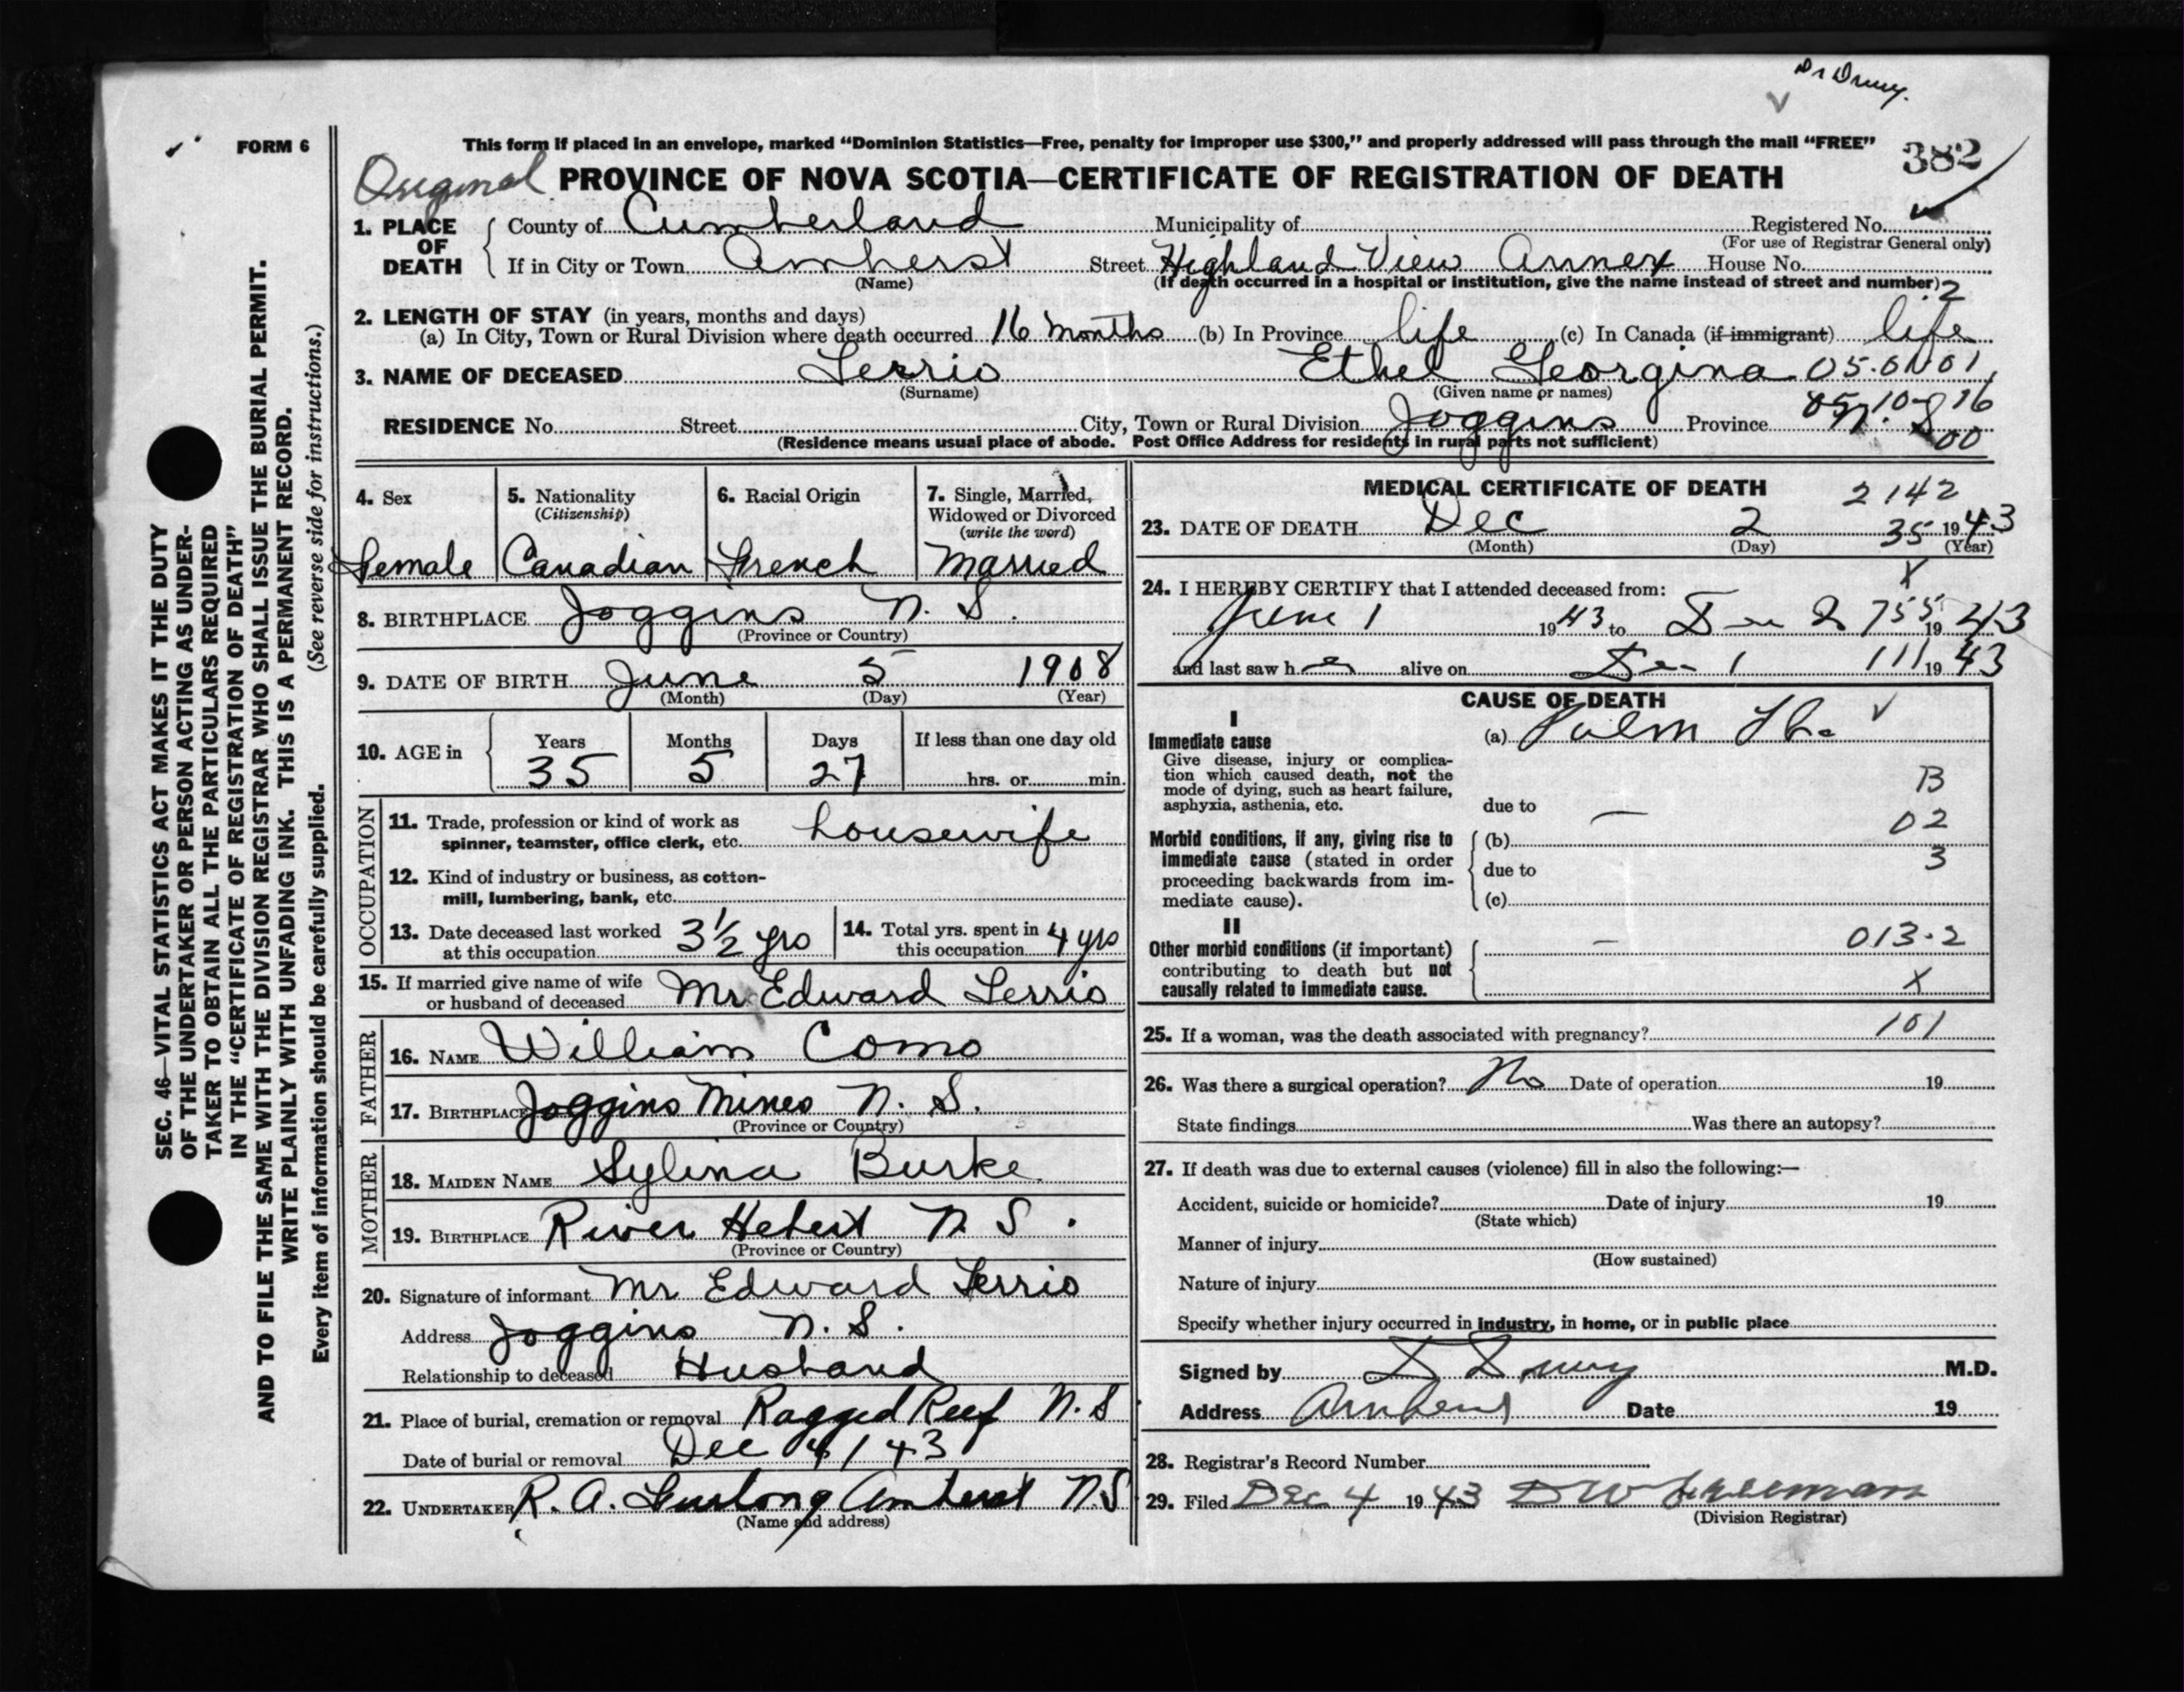 Dr Drury.
FORM 6
This form if placed in an envelope, marked “Dominion Statistics—Free, penalty for improper use $300,” and properly addressed will pass through the mail “FREE”
382
Original PROVINCE OF NOVA SCOTIA—CERTIFICATE OF REGISTRATION OF DEATH
1. PLACE OF DEATH
County of Cumberland Municipality of Registered No.
(For use of Registrar General only)
If in City or Town Amherst Street Highland View Annex House No.
(Name) (If death occurred in a hospital or institution, give the name instead of street and number) .2
2. LENGTH OF STAY (in years, months and days)
(a) In City, Town or Rural Division where death occurred 16 months (b) In Province life (c) In Canada (if immigrant) life
3. NAME OF DECEASED Ethel Georgina 05.01 01
(Surname) (Given name or names)
RESIDENCE No. Street City, Town or Rural Division Joggins Province N. S 05 10- 16
(Residence means usual place of abode. Post Office Address for residents in rural parts not sufficient) 00
4. Sex
Female
5. Nationality
(Citizenship)
Canadian
6. Racial Origin
French
7. Single, Married,
Widowed or Divorced
(write the word)
Married
8. BIRTHPLACE Joggins N. S.
(Province or Country)
9. DATE OF BIRTH June 5 1908
(Month) (Day) (Year)
10. AGE in
Years Months Days If less than one day old
35 5 27 hrs. or min.
OCCUPATION
11. Trade, profession or kind of work as
spinner, teamster, office clerk, etc. housewife
12. Kind of industry or business, as cotton-
mill, lumbering, bank, etc.
13. Date deceased last worked
at this occupation 3½ yrs
14. Total yrs. spent in
this occupation 4 yrs
15. If married give name of wife
or husband of deceased Mr Edward
FATHER
16. NAME William Como
17. BIRTHPLACE Joggins Mines N. S.
(Province or Country)
MOTHER
18. MAIDEN NAME Sylina Burke
19. BIRTHPLACE River Hebert N S.
(Province or Country)
20. Signature of informant Mr Edward
Address Joggins N. S.
Relationship to deceased Husband
21. Place of burial, cremation or removal Ragged Reef N. S
Date of burial or removal Dec 4/43
22. UNDERTAKER R. A. Furlong Amherst NS
(Name and address)
MEDICAL CERTIFICATE OF DEATH 2142
23. DATE OF DEATH Dec 2 35 1943
(Month) (Day) (Year)
X
24. I HEREBY CERTIFY that I attended deceased from:
June 1 1943 to Dec 2 755 1943
and last saw h er alive on Dec 1 111 1943
CAUSE OF DEATH
I
Immediate cause
Give disease, injury or complica-
tion which caused death, not the
mode of dying, such as heart failure,
asphyxia, asthenia, etc.
(a) Pulm Tbc
B
due to —
02
Morbid conditions, if any, giving rise to
immediate cause (stated in order
proceeding backwards from im-
mediate cause).
(b)
due to 3
(c)
II
Other morbid conditions (if important)
contributing to death but not
causally related to immediate cause.
— 013.2
X
25. If a woman, was the death associated with pregnancy? 101
26. Was there a surgical operation? No Date of operation 19
State findings Was there an autopsy?
27. If death was due to external causes (violence) fill in also the following:—
Accident, suicide or homicide? Date of injury 19
(State which)
Manner of injury
(How sustained)
Nature of injury
Specify whether injury occurred in industry, in home, or in public place
Signed by D Drury M.D.
Address Amherst Date 19
28. Registrar's Record Number
29. Filed Dec 4 1943 D W
(Division Registrar)
SEC. 46—VITAL STATISTICS ACT MAKES IT THE DUTY
OF THE UNDERTAKER OR PERSON ACTING AS UNDER-
TAKER TO OBTAIN ALL THE PARTICULARS REQUIRED
IN THE “CERTIFICATE OF REGISTRATION OF DEATH”
AND TO FILE THE SAME WITH THE DIVISION REGISTRAR WHO SHALL ISSUE THE BURIAL PERMIT.
WRITE PLAINLY WITH UNFADING INK. THIS IS A PERMANENT RECORD.
Every item of information should be carefully supplied. (See reverse side for instructions.)